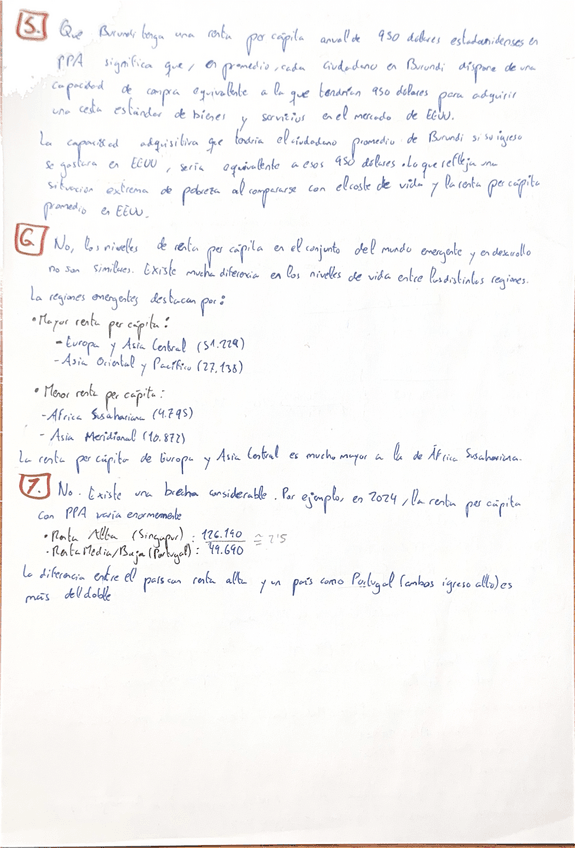 5. Que Burundi tenga una renta per cápita anual de 950 dólares estadounidenses en
PPA significa que, en promedio, cada ciudadano en Burundi dispone de una
capacidad de compra equivalente a la que tendrían 950 dólares para adquirir
una cesta estándar de bienes y servicios en el mercado de EEUU.
La capacidad adquisitiva que tendría el ciudadano promedio de Burundi si su ingreso
se gastara en EEUU, sería equivalente a esos 950 dólares. Lo que refleja una
situación extrema de pobreza al compararse con el coste de vida y la renta per cápita
promedio en EEUU.
6. No, los niveles de renta per cápita en el conjunto del mundo emergente y en desarrollo
no son similares. Existe mucha diferencia en los niveles de vida entre las distintas regiones.
La regiones emergentes destacan por:
• Mayor renta per cápita:
- Europa y Asia Central (51.229)
- Asia Oriental y Pacífico (27.138)
• Menor renta per cápita:
- África Susahariana (4.795)
- Asia Meridional (10.872)
La renta per cápita de Europa y Asia Central es mucho mayor a la de África Susahariana.
7. No. Existe una brecha considerable. Por ejemplo, en 2024, la renta per cápita
con PPA varía enormemente
• Renta Alta (Singapur): 126.190 ≅ 2'5
• Renta Media/Baja (Portugal): 49.690
La diferencia entre el país con renta alta y un país como Portugal (ambos ingreso alto) es
más del doble